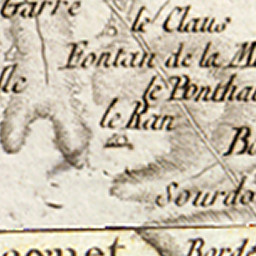 Garre
le Claus
Fontan de la
le Ponthau
le Ran
Sourdo
Borde